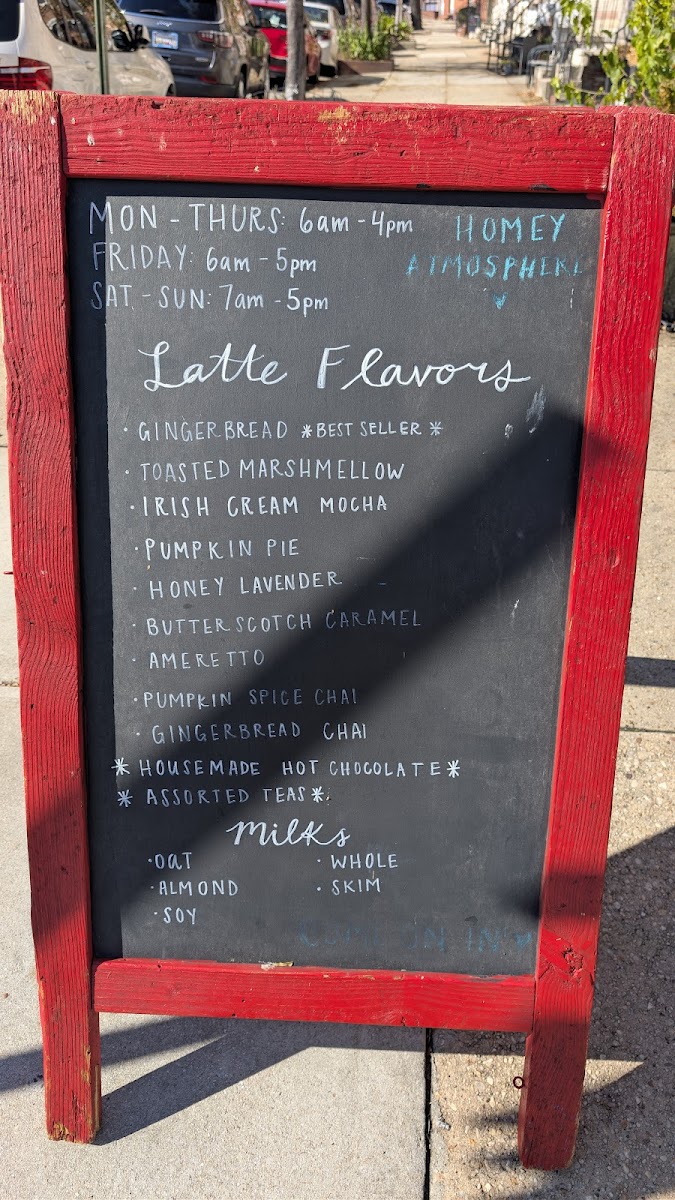 MON - THURS: 6am - 4pm
FRIDAY: 6am - 5pm
SAT - SUN: 7am - 5pm
HOMEY
ATMOSPHERE
Latte Flavors
• GINGERBREAD *BEST SELLER*
• TOASTED MARSHMELLOW
• IRISH CREAM MOCHA
• PUMPKIN PIE
• HONEY LAVENDER
• BUTTERSCOTCH CARAMEL
• AMERETTO
• PUMPKIN SPICE CHAI
• GINGERBREAD CHAI
* HOUSEMADE HOT CHOCOLATE *
* ASSORTED TEAS *
Milks
• OAT
• ALMOND
• SOY
• WHOLE
• SKIM
COME ON IN